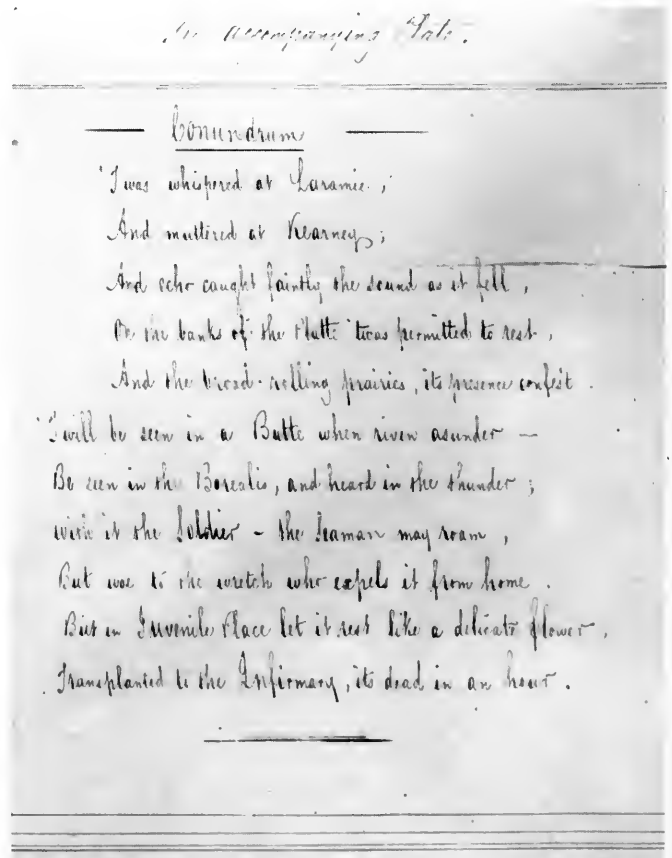 accompanying
Conundrum
'Twas whispered at Laramie,
And muttered at Kearney;
And echo caught faintly the sound as it fell,
On the banks of the Platte 'twas permitted to rest,
And the broad-rolling prairies, its presence confest.
'Twill be seen in a Butte when riven asunder —
Be seen in the Borealis, and heard in the thunder;
with it the Soldier - the Seaman may roam,
But woe to the wretch who expels it from home.
But in Juvenile Place let it rest like a delicate flower,
Transplanted to the Infirmary, its dead in an hour.